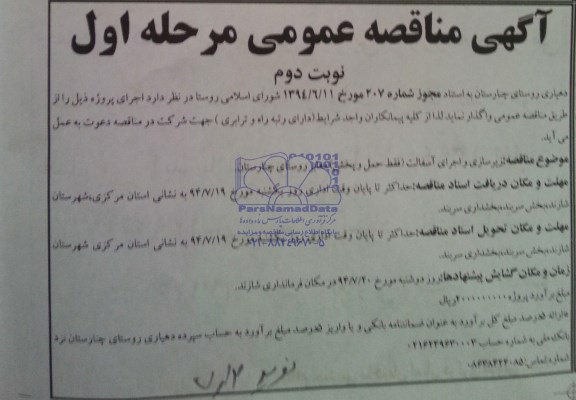 آگهی مناقصه عمومی مرحله اول
نوبت دوم
دهیاری روستای چنارستان به استناد مجوز شماره ۲۰۷ مورخ ۱۳۹٤/٦/۱۱ شورای اسلامی روستا در نظر دارد اجرای پروژه ذیل را از
طریق مناقصه عمومی واگذار نماید لذا از کلیه پیمانکاران واجد شرایط (دارای رتبه راه و ترابری ) جهت شرکت در مناقصه دعوت به عمل
می آید.
موضوع مناقصه: زیرسازی و اجرای آسفالت (فقط حمل و پخش روستای چنارستان.
مهلت و مکان دریافت اسناد مناقصه: حداکثر تا پایان وقت اداری روز یکشنبه مورخ ۹٤/۷/۱۹ به نشانی استان مرکزی، شهرستان
شازند، بخش سربند، بخشداری سربند.
مهلت و مکان تحویل اسناد مناقصه: حداکثر تا پایان وقت مورخ ۹٤/۷/۱۹ به نشانی استان مرکزی شهرستان
شازند، بخش سربند، بخشداری سربند.
زمان و مکان گشایش پیشنهادها: روز دوشنبه مورخ ۹٤/۷/۲۰ در مکان فرمانداری شازند.
مبلغ برآورد پروژه ریال
ارائه ۵درصد مبلغ کل برآورد به عنوان ضمانتنامه بانکی و یا واریز ۵درصد مبلغ برآورد به حساب سپرده دهیاری روستای چنارستان نزد
بانک ملی به شماره حساب
شماره تماس:
ParsNamadData
نوبت